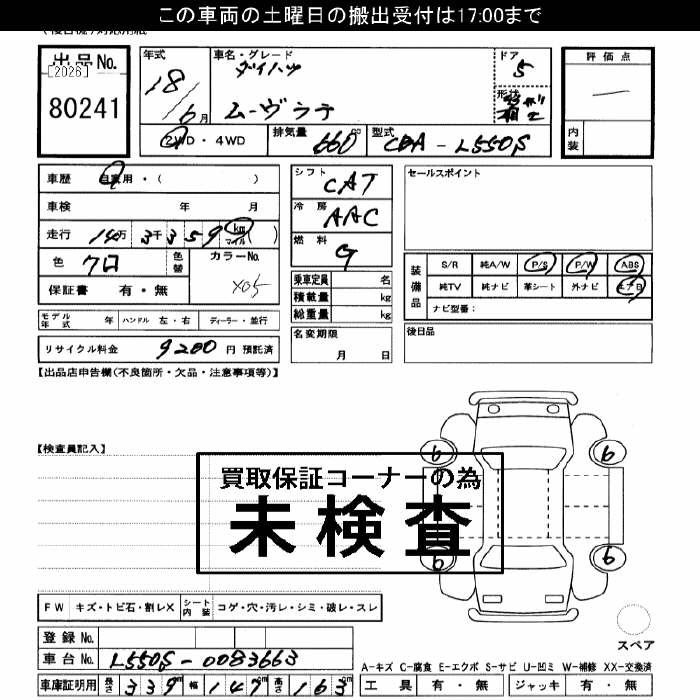 この車両の土曜日の搬出受付は17:00まで
出品No.
[2026]
80241
年式
18/6月
車名・グレード
ダイハツ
ムーヴラテ
ドア
5
形状
評価点
内装
2WD・4WD
排気量
660 cc
型式
CBA-L550S
車歴
自家用・( )
車検 年 月
走行 14万3千359 km マイル ( )
色 クロ
色替
カラーNo.
X05
保証書 有・無
シフト
CAT
冷房
AAC
燃料
G
乗車定員 名
積載量 kg
総重量 kg
セールスポイント
装備品
S/R 純A/W P/S P/W ABS
純TV 純ナビ 革シート 外ナビ エアB
ナビ型番:
モデル年式 年 ハンドル 左・右 ディーラー・並行
リサイクル料金 9200 円 預託済
名変期限
月 日
後日品
【出品店申告欄(不良箇所・欠品・注意事項等)】
【検査員記入】
買取保証コーナーの為
未検査
6 6
6 6
FW キズ・トビ石・割レX
シート内装 コゲ・穴・汚レ・シミ・破レ・スレ
スペア
登録No.
車台No. L550S-0083663
A-キズ C-腐食 E-エクボ S-サビ U-凹ミ W-補修 XX-交換済
車庫証明用 長さ 339cm 幅 147cm 高さ 163cm
工具 有・無 ジャッキ 有・無